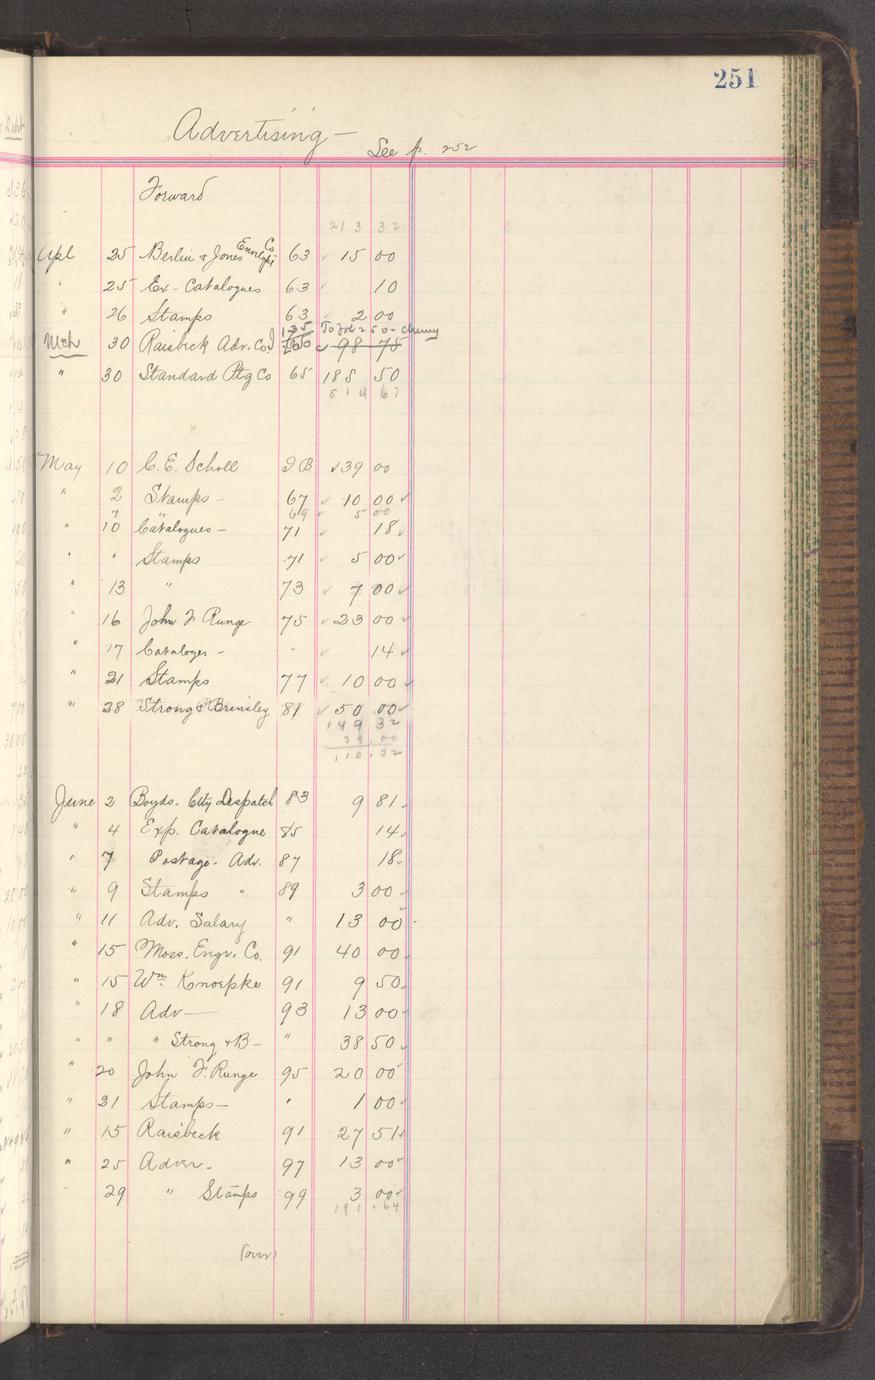 251
Advertising — See p. 252
Forward
213 32
Apl 25 Berlin & Jones Envelope Co 63 15 00
" 25 Ex- Catalogues 63 10
" 26 Stamps 63 2 00
135 To fol 250 -
Mch 30 Raisbeck Adv. Co. 98 75
" 30 Standard Ptg Co 65 185 50
514 67
May 10 C. E. Scholl J B 39 00
" 2 Stamps - 67 10 00
" " 69 5 00
" 10 Catalogues - 71 18
" " Stamps 71 5 00
" 13 " 73 7 00
" 16 John F Runge 75 23 00
" 17 Cataloges - " 14
" 21 Stamps 77 10 00
" 28 Strong & Brinsley 81 50 00
149 32
39.00
110.32
June 2 Boyds. City Despatch 83 9 81
" 4 Exp. Catalogue 85 14
" 7 Postage- Adv. 87 18
" 9 Stamps " 89 3 00
" 11 Adv. Salary " 13 00
" 15 Moss. Engr. Co. 91 40 00
" 15 Wm. Knoepke 91 9 50
" 18 Adv— 93 13 00
" " " Strong & B— " 38 50
" 20 John F. Runge 95 20 00
" 21 Stamps— " 1 00
" 15 Raisbeck 91 27 51
" 25 Adver- 97 13 00
" 29 " Stamps 99 3 00
191.64
(over)